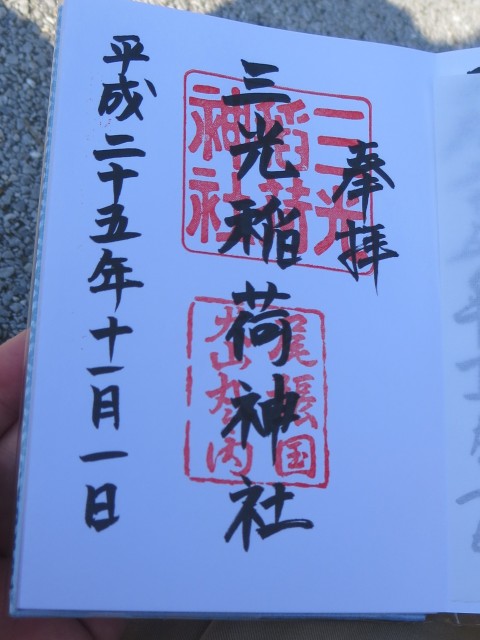 奉拝
三光稲荷神社
平成二十五年十一月一日
三光
稲荷
神社
尾張国
犬山丸之内